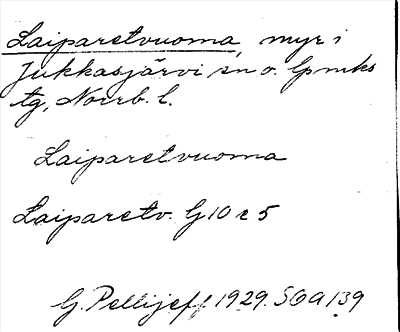 Laiparetvuoma, myr i
Jukkasjärvi sn o. lpmks
tg, Norrb. l.
Laiparetvuoma
Laiparetv. G10 c 5
G. Pellijeff 1929. SOA 139